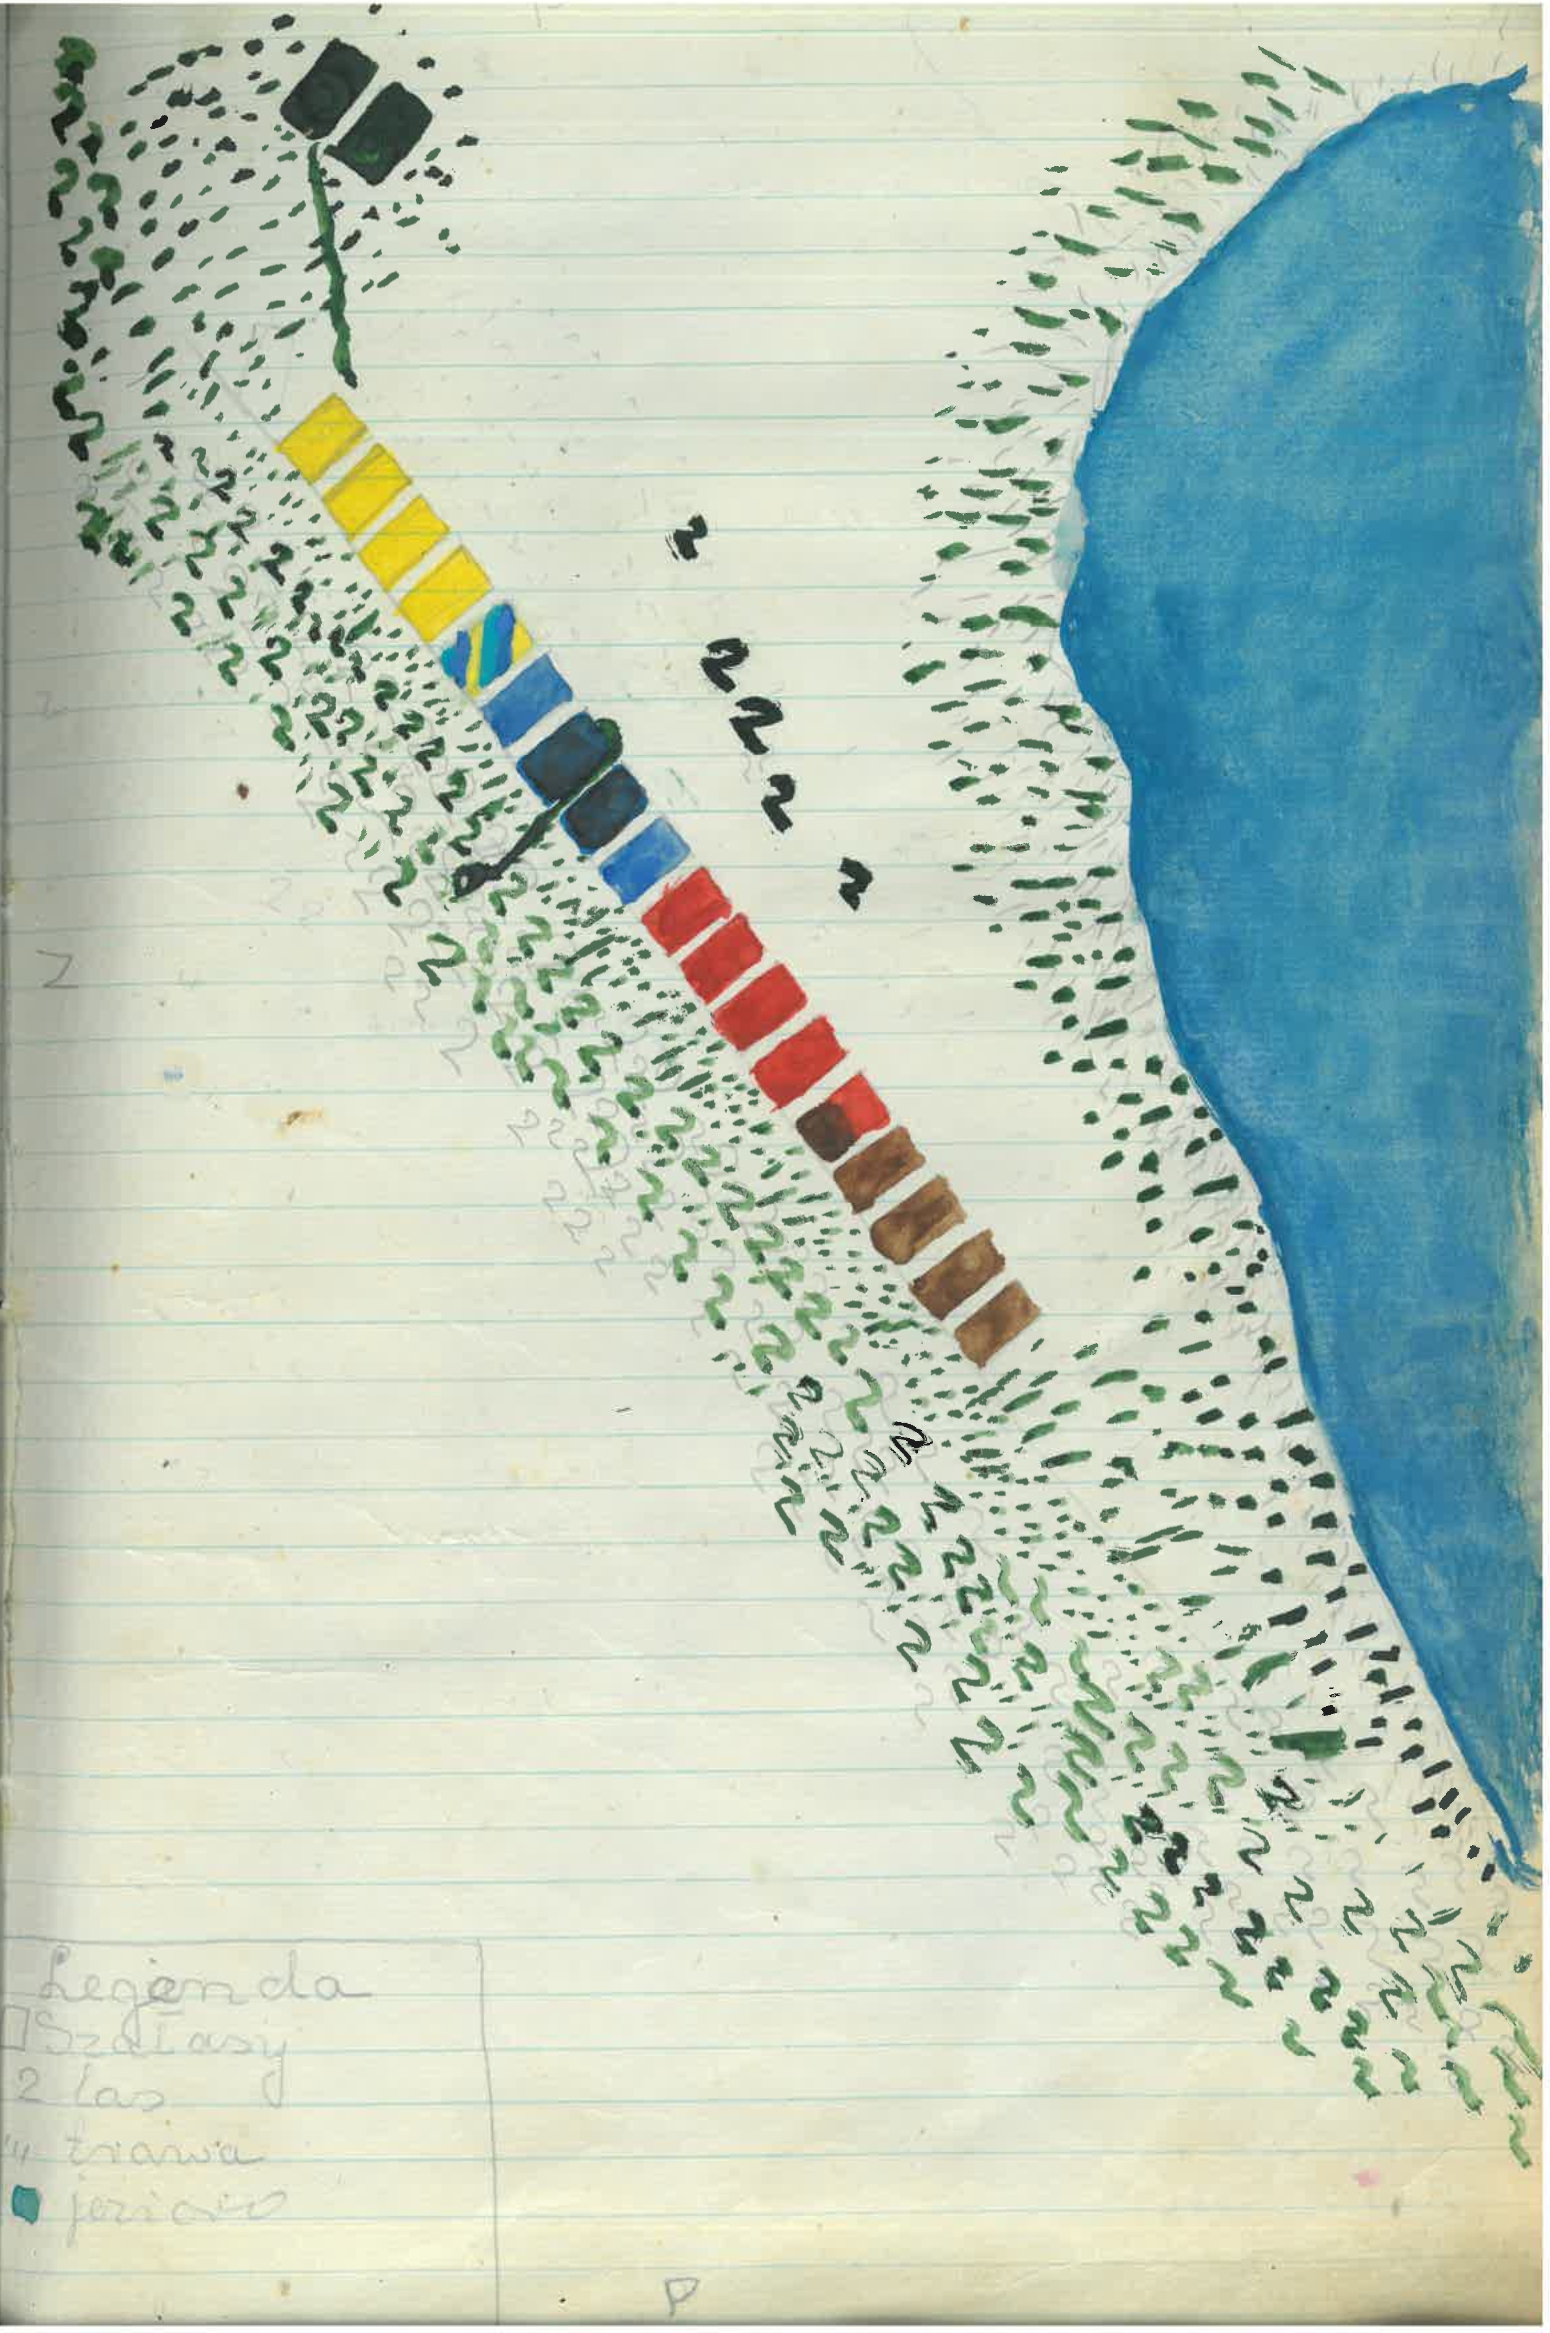 Z
Legenda
Szałasy
las
trawa
jezioro
P